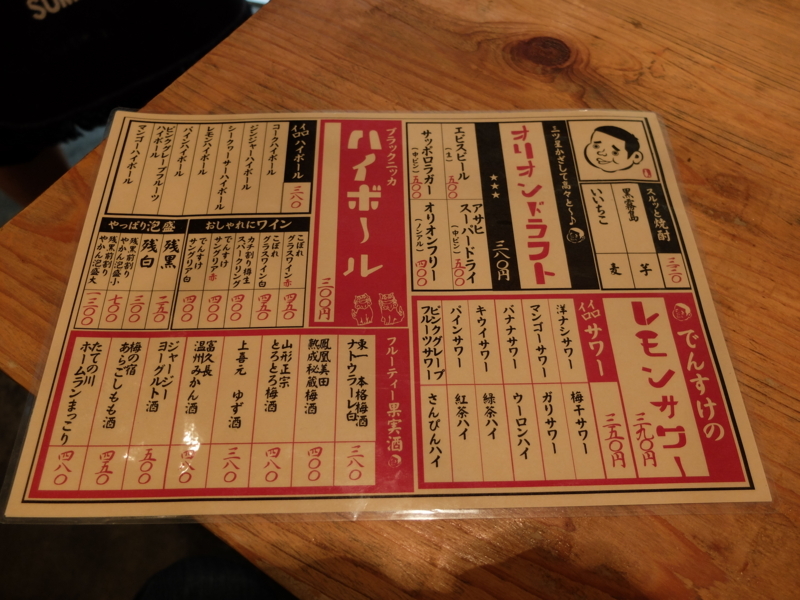 SUM
スルッと焼酎 三三〇
黒霧島 芋
いいちこ 麦
三ツ星かざして高々と〜♪
オリオンドラフト
★★★
三八〇円
エビスビール
(生) 五〇〇
アサヒ
スーパードライ
(中ビン) 五〇〇
サッポロラガー
(中ビン) 五〇〇
オリオンフリー
(ノンアル) 四〇〇
でんすけの
レモンサワー
三九〇円
サワー
三五〇円
洋ナシサワー
梅干サワー
マンゴーサワー
ガリサワー
バナナサワー
ウーロンハイ
キウイサワー
緑茶ハイ
パインサワー
紅茶ハイ
ピンクグレープ
フルーツサワー
さんぴんハイ
ブラックニッカ
ハイボール
三〇〇円
ハイボール 三八〇
コークハイボール
ジンジャーハイボール
シークヮーサーハイボール
レモンハイボール
パインハイボール
ピンクグレープフルーツ
ハイボール
マンゴーハイボール
おしゃれにワイン
こぼれ
グラスワイン赤 四五〇
こぼれ
グラスワイン白 四五〇
カチ割り極生
スパークリング 四〇〇
でんすけ
サングリア赤 四〇〇
でんすけ
サングリア白 四〇〇
やっぱり泡盛
残黒 二五〇
残白 三〇〇
残黒前割り
やかん泡盛小 七〇〇
残黒前割り
やかん泡盛大 一三〇〇
フルーティー果実酒
東一 本格梅酒
ナトゥラーレ白 三八〇
鳳凰美田
熟成秘蔵梅酒 四〇〇
山形正宗
とろとろ梅酒 四八〇
上喜元 ゆず酒 三八〇
富久長
温州みかん酒 四八〇
ジャージー
ヨーグルト酒 五〇〇
梅の宿
あらごしもも酒 四五〇
たての川
ホームランまっこり 四八〇